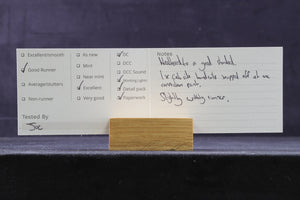 Excellent/smooth
Good Runner
Average/stutters
Non-runner
Tested By
Joe
As new
Mint
Near mint
Excellent
Very good
DC
DCC
DCC Sound
Working Lights
Detail pack
Paperwork
Notes
Weathered to a good standard.
1x cab side handrails snapped off at one
end.
Slightly wobbly runner.